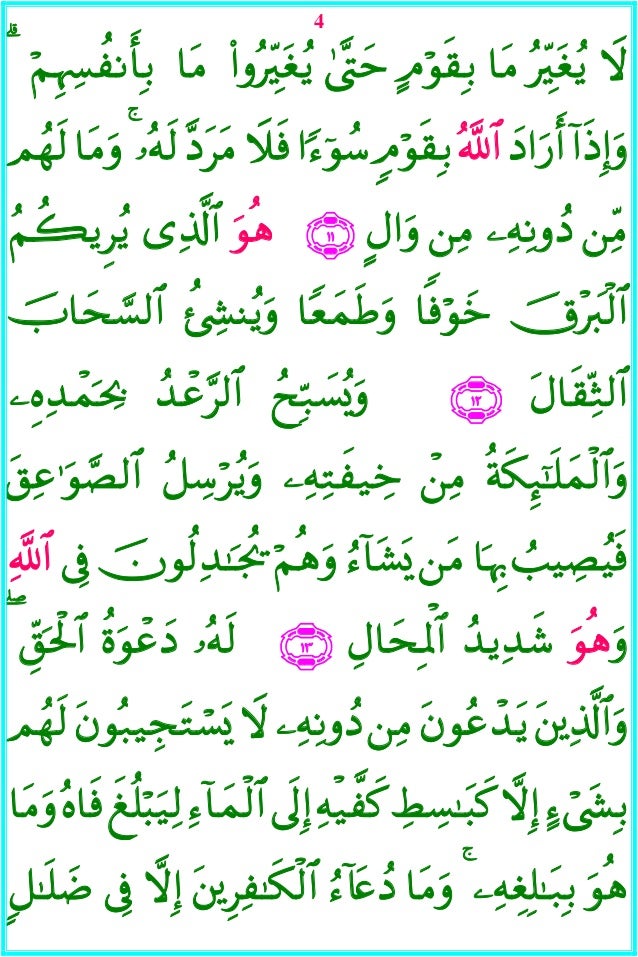 4
لَا يُغَيِّرُ مَا بِقَوْمٍ حَتَّىٰ يُغَيِّرُوا۟ مَا بِأَنفُسِهِمْ ۗ
وَإِذَآ أَرَادَ ٱللَّهُ بِقَوْمٍ سُوٓءًا فَلَا مَرَدَّ لَهُۥ ۚ وَمَا لَهُم
مِّن دُونِهِۦ مِن وَالٍ ١١ هُوَ ٱلَّذِى يُرِيكُمُ
ٱلْبَرْقَ خَوْفًا وَطَمَعًا وَيُنشِئُ ٱلسَّحَابَ
ٱلثِّقَالَ ١٢ وَيُسَبِّحُ ٱلرَّعْدُ بِحَمْدِهِۦ
وَٱلْمَلَٰٓئِكَةُ مِنْ خِيفَتِهِۦ وَيُرْسِلُ ٱلصَّوَٰعِقَ
فَيُصِيبُ بِهَا مَن يَشَآءُ وَهُمْ يُجَٰدِلُونَ فِى ٱللَّهِ
وَهُوَ شَدِيدُ ٱلْمِحَالِ ١٣ لَهُۥ دَعْوَةُ ٱلْحَقِّ ۖ
وَٱلَّذِينَ يَدْعُونَ مِن دُونِهِۦ لَا يَسْتَجِيبُونَ لَهُم
بِشَىْءٍ إِلَّا كَبَٰسِطِ كَفَّيْهِ إِلَى ٱلْمَآءِ لِيَبْلُغَ فَاهُ وَمَا
هُوَ بِبَٰلِغِهِۦ ۚ وَمَا دُعَآءُ ٱلْكَٰفِرِينَ إِلَّا فِى ضَلَٰلٍ